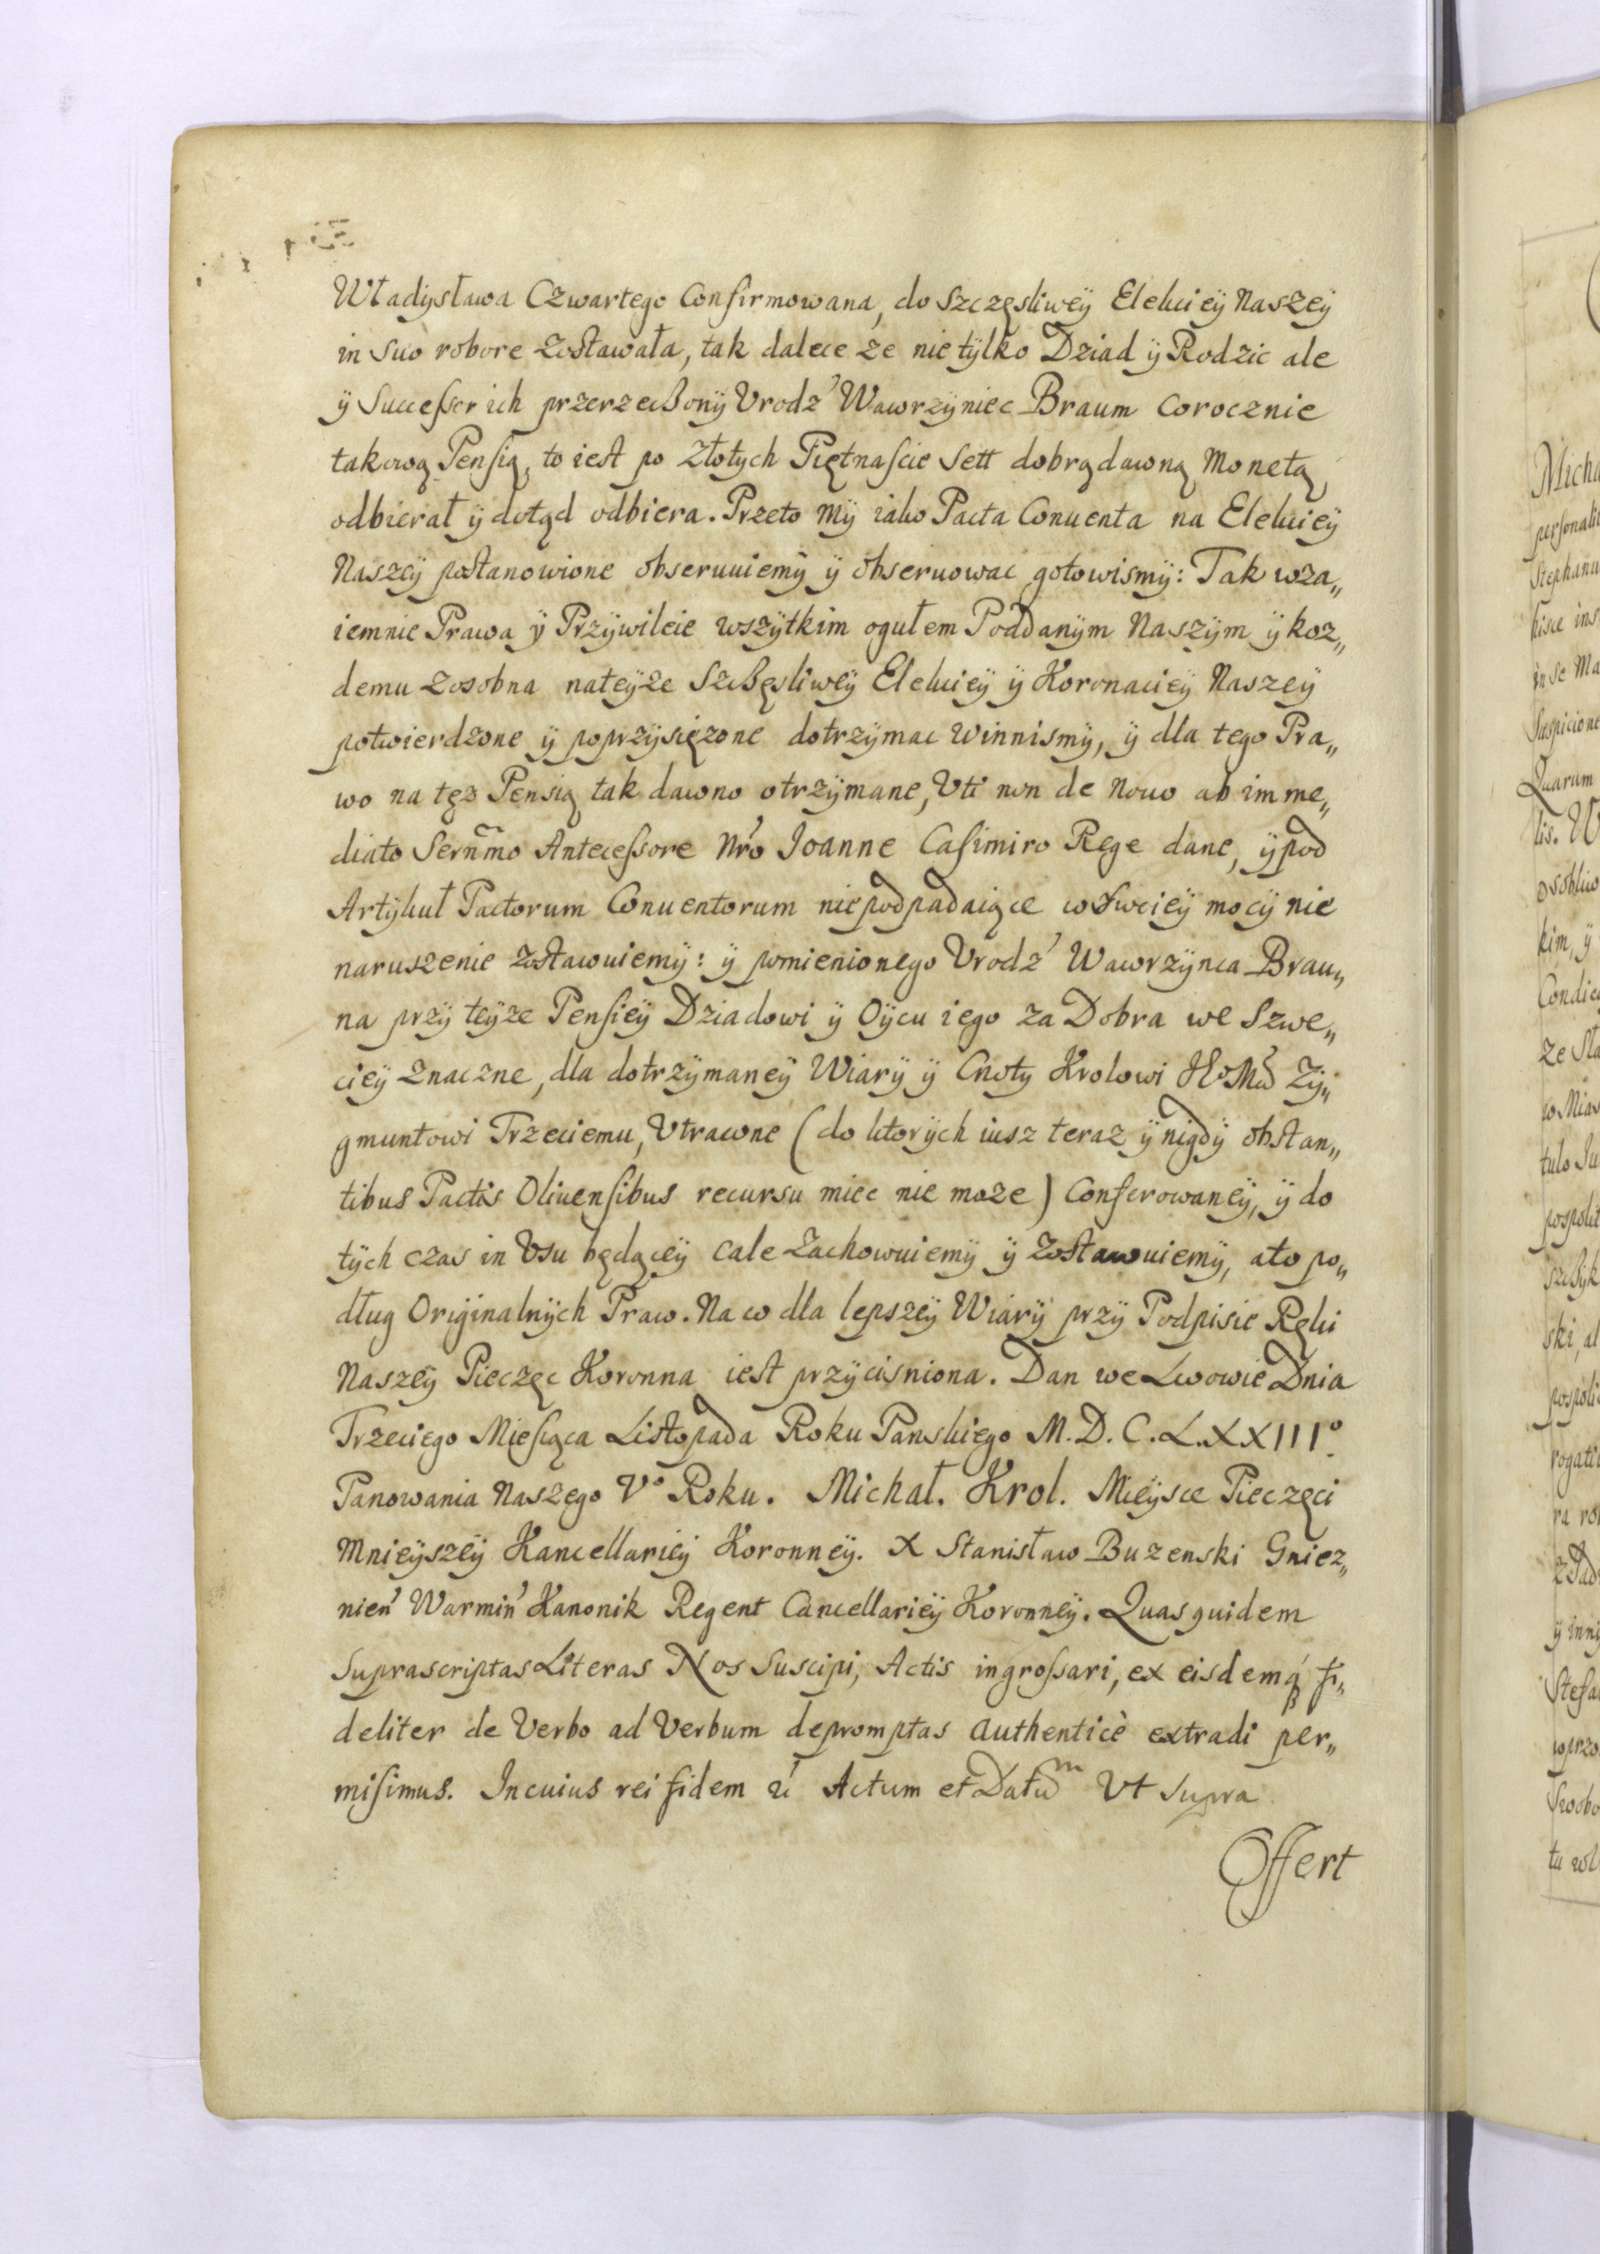 Władysława Czwartego Confirmowana, do Szczęsliwey Elekciey Naszey
in suo robore zostawała, tak dalece ze nie tylko Dziad y Rodzic ale
y Successor ich przerzeczony Vrodz' Wawrzyniec Braum corocznie
takową Pensią, to iest po Złotych Piętnascie Sett dobrą dawną Monetą
odbierał y dotąd odbiera. Przeto My iako Pacta Conuenta na Elekciey
Naszey postanowione obseruuiemy y obseruowac gotowismy: Tak wza„
iemnie Prawa y Przywileie wszytkim ogułem Poddanym Naszym y koz„
demu zosobna nateyze Szczęsliwey Elekciey y Koronaciey Naszey
potwierdzone y poprzysięzone dotrzymac winnismy, y dla tego Pra„
wo na tęz Pensią tak dawno otrzymane, Vti non de nouo ab imme„
diato Sernmo Antecessore Nro Joanne Casimiro Rege dane, y pod
Artykuł Pactorum Conuentorum niepodpadaiące w swoiey mocy nie
naruszenie zostawuiemy: y pomienionego Vrodz' Wawrzynca Brau„
na przy teyze Pensiey Dziadowi y Oycu iego za Dobra we Szwe„
ciey znaczne, dla dotrzymaney Wiary y Cnoty Krolowi Zy„
gmuntowi Trzeciemu, Vtracone (do ktorych iusz teraz y nigdy obstan„
tibus Pactis Oliuensibus recursu miec nie moze) Conferowaney, y do
tych czas in Vsu będącey cale zachowuiemy y zostawuiemy, ato po„
dług Originalnych Praw. Na co dla lepszey Wiary przy Podpisie Ręki
Naszey Pieczęc Koronna iest przycisniona. Dan we Lwowie Dnia
Trzeciego Miesiąca Listopada Roku Panskiego M.D.C.L.XXIIIº.
Panowania Naszego Vº Roku. Michał. Krol. Mieysce Pieczęci
Mnieyszey Kancellariey Koronney. X Stanisław Buzenski Gniez„
nien' Warmin' Kanonik Regent Cancellariey Koronney. Quas quidem
suprascriptas Literas Nos suscipi, Actis ingrossari, ex eisdemq́ fi„
deliter de Verbo ad Verbum depromptas authenticè extradi per„
misimus. In cuius rei fidem Actum et Datu͂m Vt supra
Offert